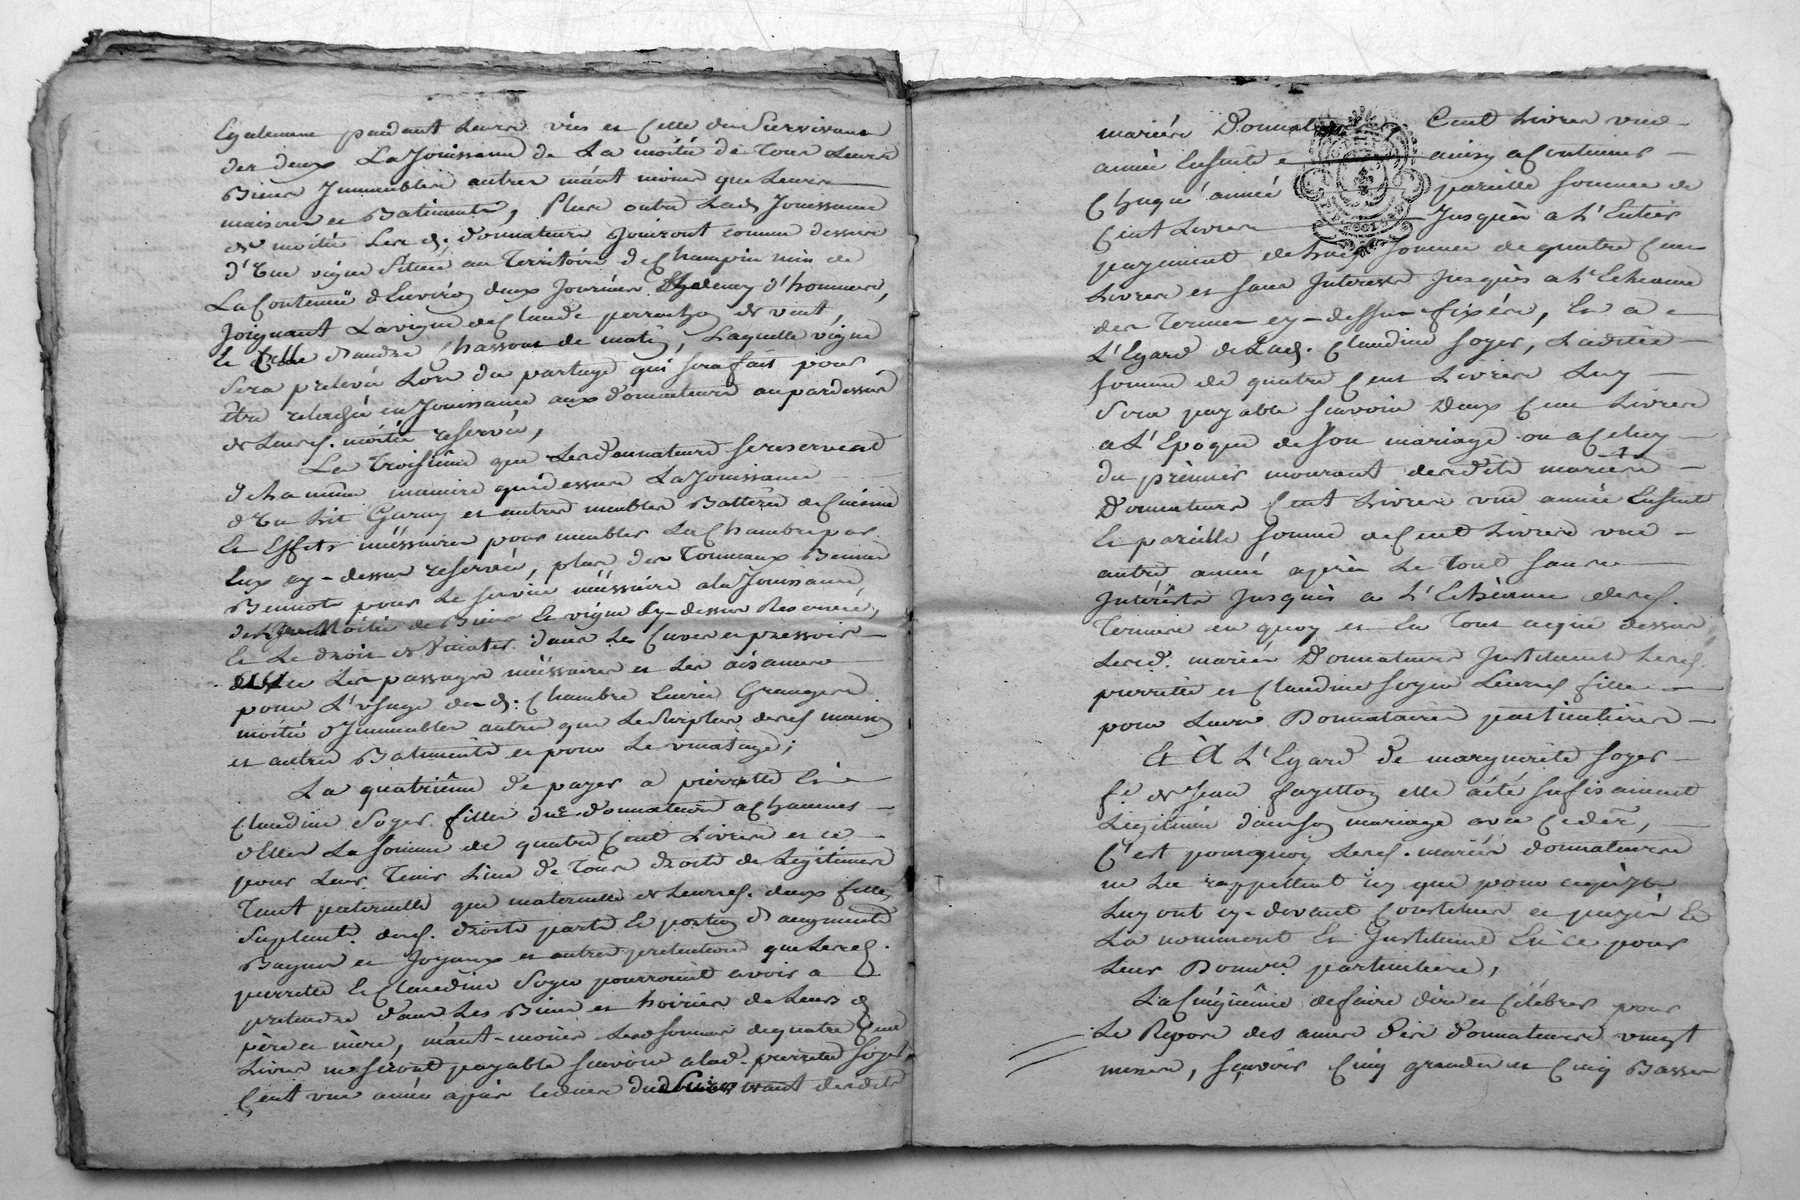 Egalement pendant Leurs vies et Celle du Survivant
des deux La Jouissance de La moitié de Tous Leurs
Biens Jmmeubles autres néant moins que Leurs
maisons et Batiments, Plus outre Lad. Jouissance
de moitié Les d. donnateurs Jouiront comme dessus
d'Une vigne Située au Territoire de Champin mis de
La Contenüe d'Environ deux Journées d'hommes,
Joignant La vigne de Claude de vent,
et Celle d'andré Chassous de matin, Laquelle vigne
Sera prelevée Lors du partage qui sera fait pour
être relachée en Jouissance aux donnateurs au pardessus
de Leurs. moitié reservée,
La Troisième que Les donnateurs se reservent
de La même maniere que dessus La Jouissance
d'Un Lit Garny et autres meubles Batterie de Cuisine
et Effets nécéssaires pour meubler La Chambre par
Eux cy-dessus reservée, plus des Tonneaux Bennes
Bennots pour Le service nécéssaire a la Jouissance
moitié de Biens et vigne Cy-dessus Reservée,
et Le droit de dans Les Cuves et pressoir
Les passages nécéssaires et Les aisances
pour L'Usage de d. Chambre Ecurie Granges
moitié d'Jmmeubles autres que Le Surplus desd maisons
et autres Batiments et pour Le vinatage;
La quatrième de payer a pierrette et
Claudine Soyer filles des donnateurs a Chacunes
d'Elles La Somme de quatre Cent Livres et ce
pour Leur Tenir Lieu de Tous droits de Legitimes
Tant paternelle que maternelle de Leursd. deux filles
Suplement desd. droits parts et portion d'augment
Bagues et Joyaux et autres pretentions que Lesd.
pierrette et Claudine Soyer pourroient avoir a
pretendre dans Les Biens et hoiries de Leurs d
père et mère, néant-moins Lesd sommes de quatre Cent
Livres ne seront payable scavoir a lad. pierrette Soyer
Cent une année après le déces du Survivant desdits
mariés Donnateurs Cent Livres une
année Ensuite et ainsy a Continuer
Chaque année pareille somme de
Cent Livres Jusques a L'Entier
payement de somme de quatre Cent
Livres et sans Jntérests Jusques a L'Echeance
des Termes cy-dessus fixées, Et a
L'Egard de Lad. Claudine Soyer, Laditte
somme de quatre Cent Livres Luy
Sera payable scavoir Deux Cent Livres
a L'Epoque de son mariage ou a Celuy
du prémier mourant desdits mariés
Donnateurs Cent Livres une année Ensuite
Et pareille somme de Cent Livres une
autre année après Le Tout sans
Jntérêsts Jusques a L'Echéance desd.
Termes en quoy et En Tout ce que dessus
Lesd. mariés Donnateurs Jnstituent Lesd.
pierrette et Claudine Soyer Leursd filles
pour Leurs Donnataires particulières
Et A L'Egard de marguerite Soyer
fe. de Jean fayetton elle a été sufisament
Legitimée dans son mariage avec Cedér,
C'est pourquoy Lesd. mariés donnateurs
ne La rappellent icy que pour ce qu'ils
Luy ont cy-devant Constitué et payer Et
La nomment Et Jnstituent En ce pour
Leur Donnre. particulière,
La Cinquième de faire dire et Célébrer pour
Le Repos des ames d'es donnateurs vingt
messes, sçavoir Cinq grandes et Cinq Basses